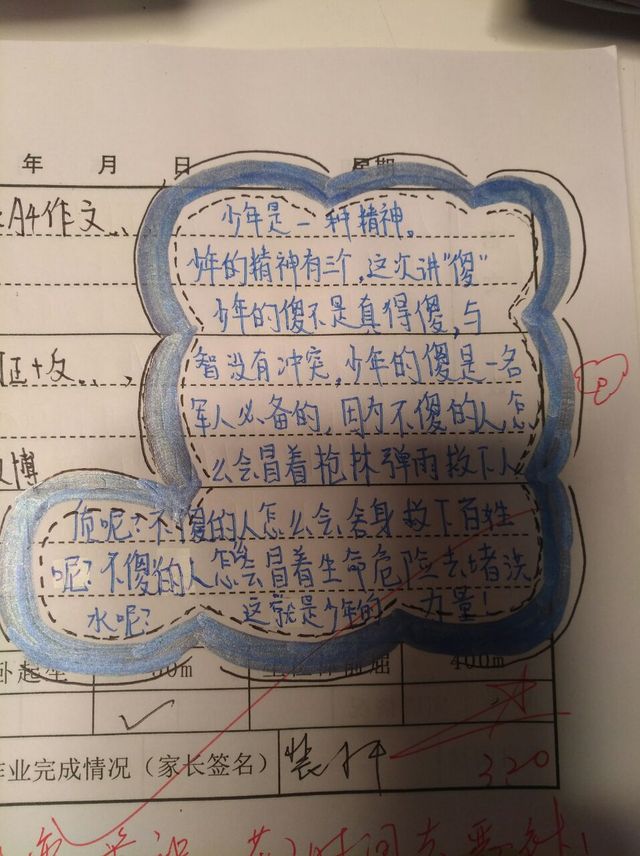 年 月 日 星期
A4作文...
少年是一种精神。
少年的精神有三个,这次讲"傻"
少年的傻不是真得傻,与
智没有冲突,少年的傻是一名
正+反...
军人必备的,因为不傻的人怎
么会冒着枪林弹雨救下人
博
质呢?不傻的人怎么会舍身救下百姓
呢?不傻的人怎会冒着生命危险去堵洪
水呢? 这就是少年的 力量!
卧起坐
50m
400m
✓
作业完成情况(家长签名)
320